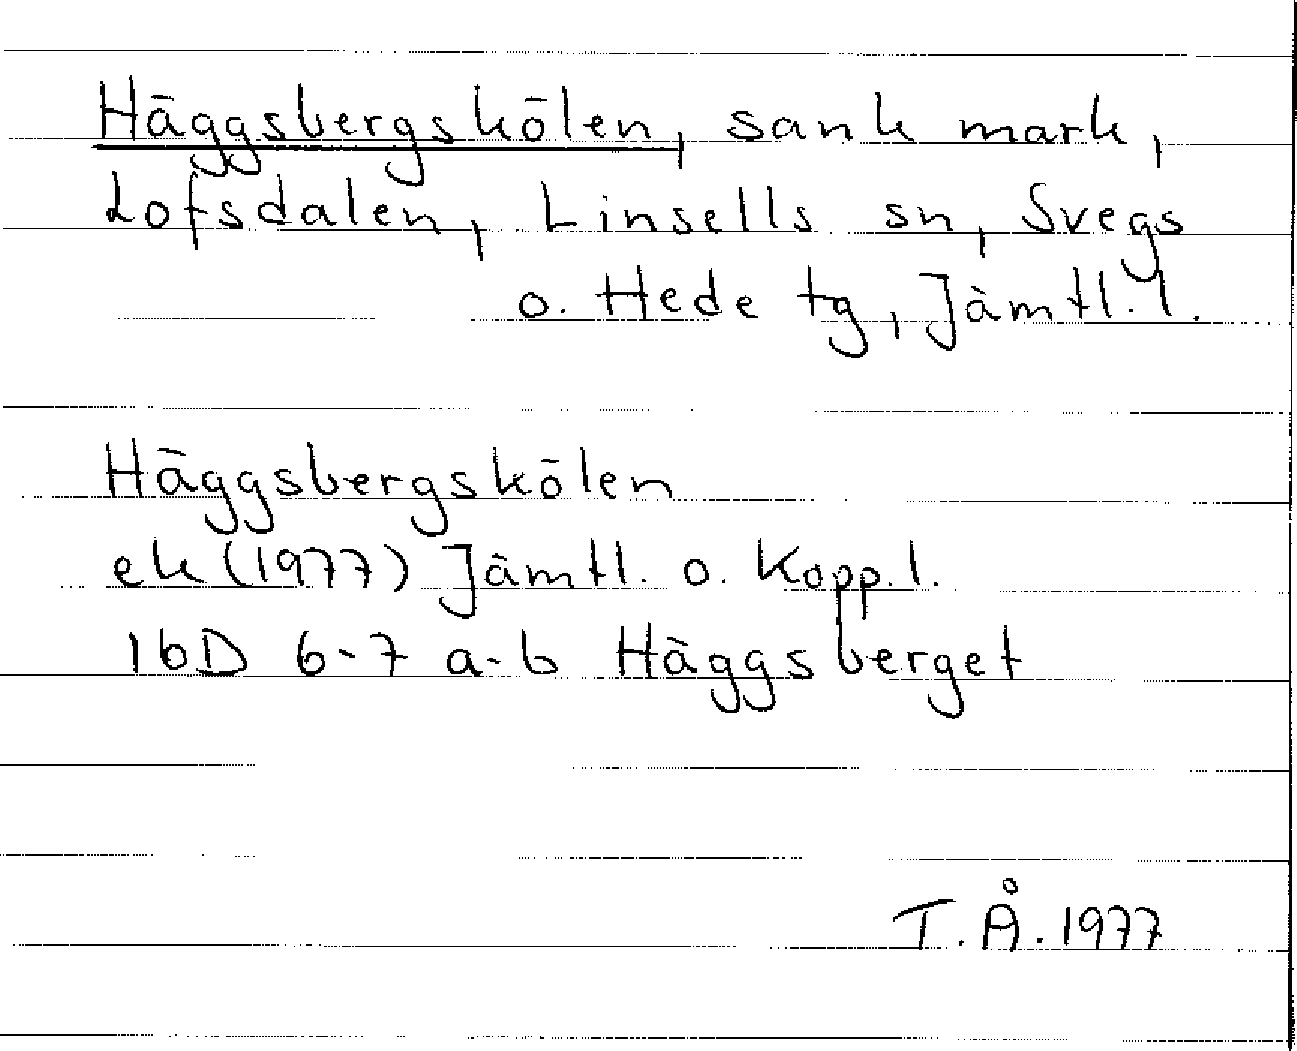 Häggsbergskölen, sank mark,
Lofsdalen, Linsells sn, Svegs
o. Hede tg, Jämtl. l.
Häggsbergskölen
ek (1977) Jämtl. o. Kopp. l.
16D 6-7 a-b Häggsberget
T. Å. 1977